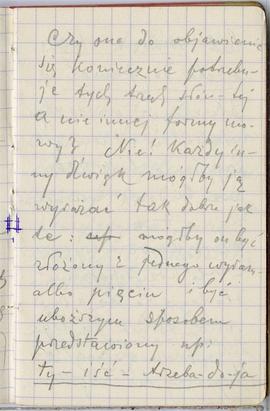 Czy one do objawienia
się koniecznie potrzebu-
je tych trzech słów - tej
a nie innej formy mo-
wy? Nie! Każdy in-
ny dźwięk mógłby ją
wyrażać tak dobrze jak
te: mógłby on być
złożony z jednego wyrazu
albo pięciu i być
uboższym sposobem
przedstawiony np:
ty - iść - trzeba-do-ja